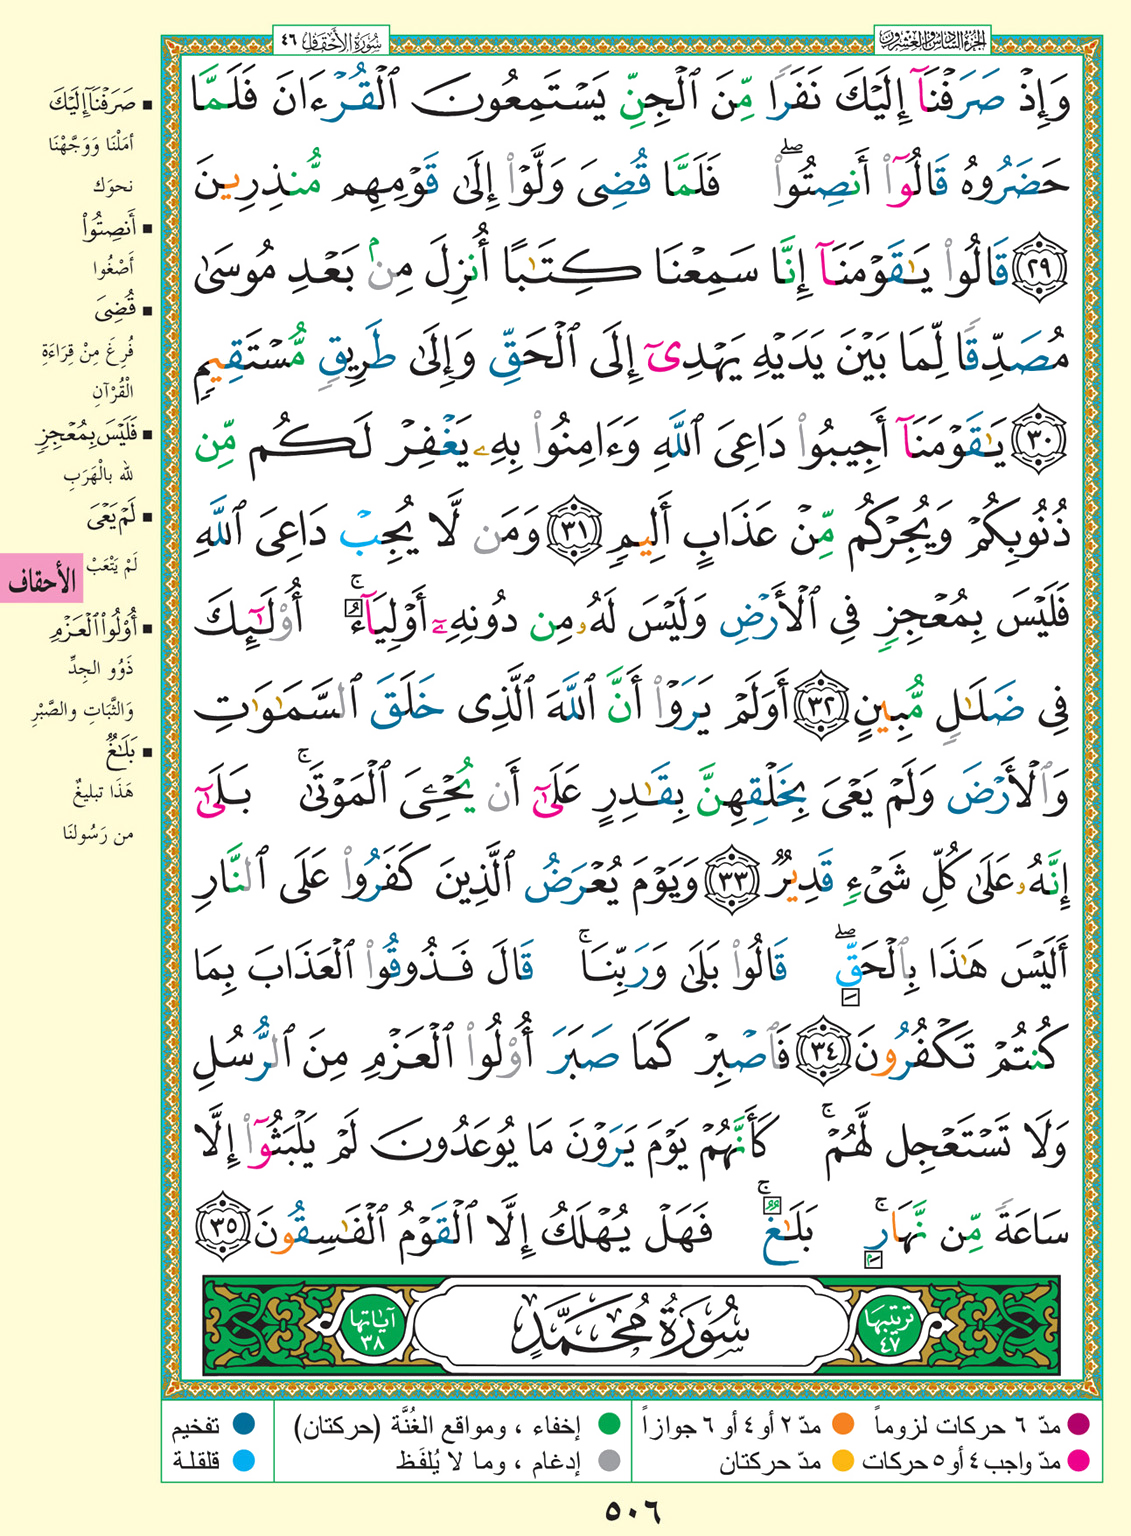 الجزء السادس والعشرون
سُورَةُ الأَحْقَاف ٤٦
وَإِذْ صَرَفْنَآ إِلَيْكَ نَفَرًا مِّنَ ٱلْجِنِّ يَسْتَمِعُونَ ٱلْقُرْءَانَ فَلَمَّا
حَضَرُوهُ قَالُوٓا۟ أَنصِتُوا۟ ۖ فَلَمَّا قُضِىَ وَلَّوْا۟ إِلَىٰ قَوْمِهِم مُّنذِرِينَ
٢٩ قَالُوا۟ يَـٰقَوْمَنَآ إِنَّا سَمِعْنَا كِتَـٰبًا أُنزِلَ مِنۢ بَعْدِ مُوسَىٰ
مُصَدِّقًا لِّمَا بَيْنَ يَدَيْهِ يَهْدِىٓ إِلَى ٱلْحَقِّ وَإِلَىٰ طَرِيقٍ مُّسْتَقِيمٍ
٣٠ يَـٰقَوْمَنَآ أَجِيبُوا۟ دَاعِىَ ٱللَّهِ وَءَامِنُوا۟ بِهِۦ يَغْفِرْ لَكُم مِّن
ذُنُوبِكُمْ وَيُجِرْكُم مِّنْ عَذَابٍ أَلِيمٍ ٣١ وَمَن لَّا يُجِبْ دَاعِىَ ٱللَّهِ
فَلَيْسَ بِمُعْجِزٍ فِى ٱلْأَرْضِ وَلَيْسَ لَهُۥ مِن دُونِهِۦٓ أَوْلِيَآءُ ۚ أُو۟لَـٰٓئِكَ
فِى ضَلَـٰلٍ مُّبِينٍ ٣٢ أَوَلَمْ يَرَوْا۟ أَنَّ ٱللَّهَ ٱلَّذِى خَلَقَ ٱلسَّمَـٰوَٰتِ
وَٱلْأَرْضَ وَلَمْ يَعْىَ بِخَلْقِهِنَّ بِقَـٰدِرٍ عَلَىٰٓ أَن يُحْـِۧىَ ٱلْمَوْتَىٰ ۚ بَلَىٰٓ
إِنَّهُۥ عَلَىٰ كُلِّ شَىْءٍ قَدِيرٌ ٣٣ وَيَوْمَ يُعْرَضُ ٱلَّذِينَ كَفَرُوا۟ عَلَى ٱلنَّارِ
أَلَيْسَ هَـٰذَا بِٱلْحَقِّ ۖ قَالُوا۟ بَلَىٰ وَرَبِّنَا ۚ قَالَ فَذُوقُوا۟ ٱلْعَذَابَ بِمَا
كُنتُمْ تَكْفُرُونَ ٣٤ فَٱصْبِرْ كَمَا صَبَرَ أُو۟لُوا۟ ٱلْعَزْمِ مِنَ ٱلرُّسُلِ
وَلَا تَسْتَعْجِل لَّهُمْ ۚ كَأَنَّهُمْ يَوْمَ يَرَوْنَ مَا يُوعَدُونَ لَمْ يَلْبَثُوٓا۟ إِلَّا
سَاعَةً مِّن نَّهَارٍۭ ۚ بَلَـٰغٌ ۚ فَهَلْ يُهْلَكُ إِلَّا ٱلْقَوْمُ ٱلْفَـٰسِقُونَ ٣٥
ترتيبها ٤٧
سُورَةُ مُحَمَّدٍ
آياتها ٣٨
صَرَفْنَآ إِلَيْكَ
أمَلْنَا وَوَجَّهْنَا
نحوَك
أَنصِتُوا۟
أصْغُوا
قُضِىَ
فُرِغَ مِنْ قِرَاءَةِ
الْقُرْآنِ
فَلَيْسَ بِمُعْجِزٍ
لله بالْهَرَبِ
لَمْ يَعْىَ
لَمْ يَتْعَبْ
الأحقاف
أُو۟لُوا۟ ٱلْعَزْمِ
ذَوُو الجِدِّ
وَالثَّبَاتِ والصَّبْرِ
بَلَـٰغٌ
هَذَا تبليغٌ
من رَسُولنَا
مدّ ٦ حركات لزوماً
مدّ ٢ أو ٤ أو ٦ جوازاً
إخفاء ، ومواقع الغُنَّة (حركتان)
تفخيم
مدّ واجب ٤ أو ٥ حركات
مدّ حركتان
إدغام ، وما لا يُلفَظ
قلقلة
٥٠٦